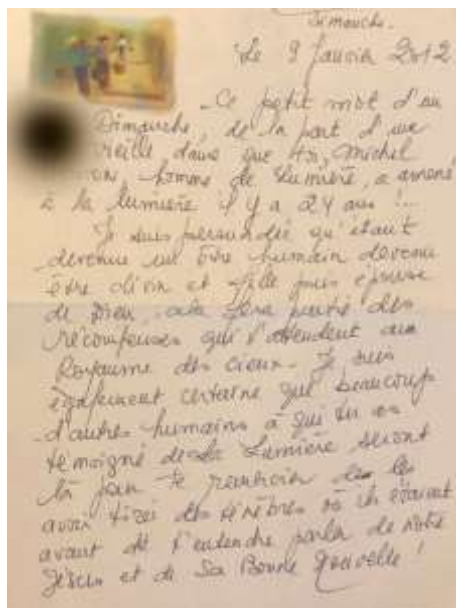 Dimanche.
Le 9 janvier 2012
Ce petit mot d'un
Dimanche, de la part d'une
vieille dame que toi, Michel
homme de Lumière, a amené
à la lumière il y a 24 ans !..
Je suis persuadée qu'étant
devenue un être humain devenu
être divin et fille puis épouse
de Dieu, cela fera partie des
récompenses qui t'attendent au
Royaume des cieux. Je suis
également certaine que beaucoup
d'autres humains à qui tu as
témoigné de la Lumière seront
là pour te remercier de les
avoir tirés des ténèbres où ils étaient
avant de t'entendre parler de notre
Jésus et de Sa Bonne Nouvelle !